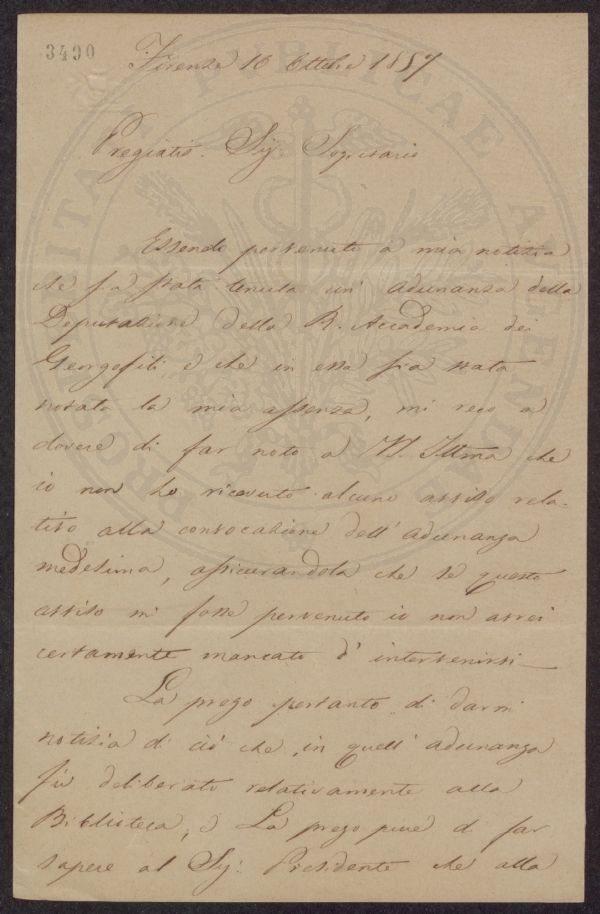 3490
Firenze 16 Ottobre 1857
Pregiatis. Sig. Segretario
Essendo pervenuto a mia notizia
che sia stata tenuta un' adunanza della
Deputazione della R. Accademia dei
Georgofili e che in essa sia stata
notata la mia assenza, mi reco a
dovere di far noto a V.S. Illma che
io non ho ricevuto alcuno avviso rela-
tivo alla convocazione dell' adunanza
medesima, assicurandola che se questo
avviso mi fosse pervenuto io non avrei
certamente mancato d' intervenirvi —
La prego pertanto di darmi
notizia di ciò che in quell' adunanza
fù deliberato relativamente alla
Biblioteca, e La prego pure di far
sapere al Sig: Presidente che alla
PROSPERITATI PUBLICAE AUGENDAE